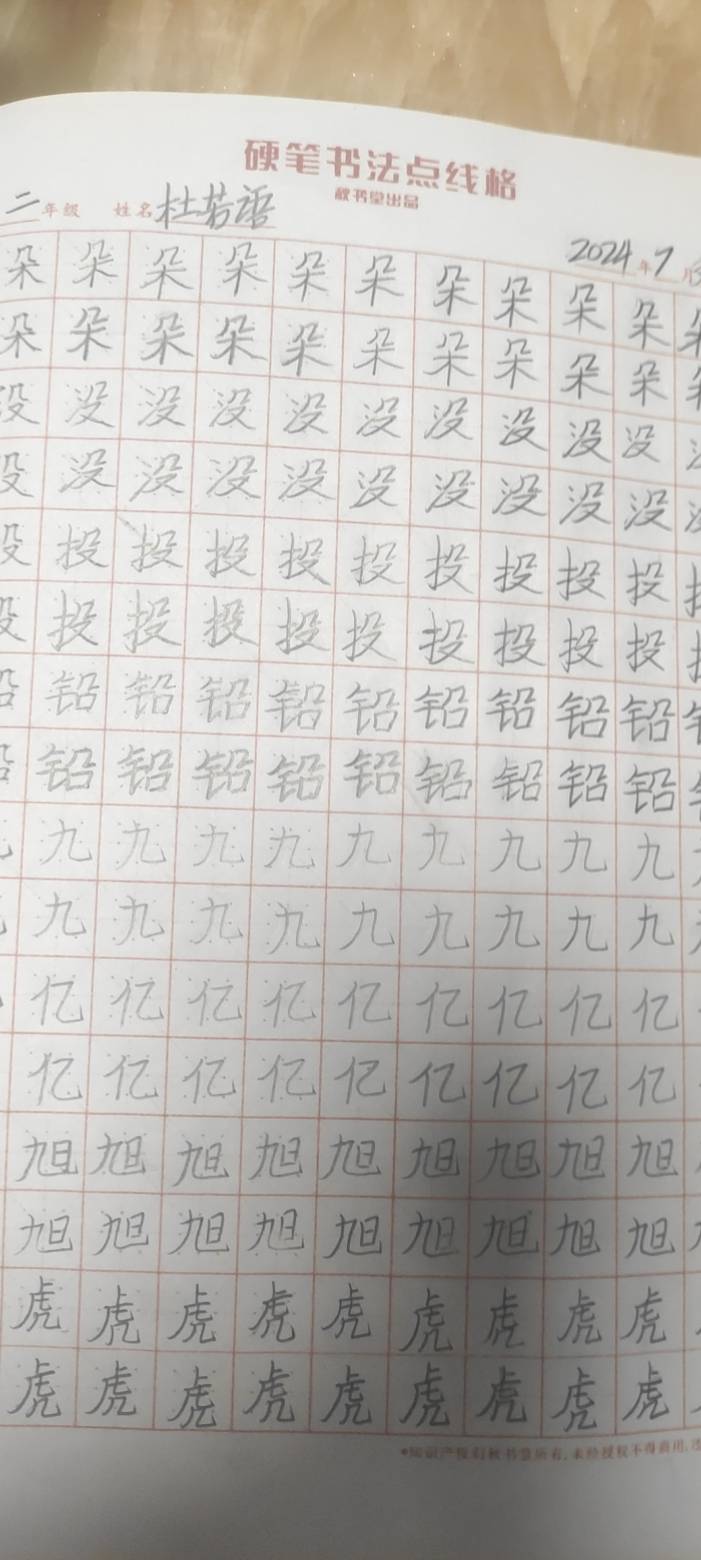 硬笔书法点线格
秋书堂出品
二年级 姓名 杜若语
2024年7月
朵朵朵朵朵朵朵朵朵朵朵
朵朵朵朵朵朵朵朵朵朵朵
没没没没没没没没没没没
没没没没没没没没没没没
投投投投投投投投投投投
投投投投投投投投投投投
铅铅铅铅铅铅铅铅铅铅铅
铅铅铅铅铅铅铅铅铅铅铅
九九九九九九九九九九
九九九九九九九九九九
亿亿亿亿亿亿亿亿亿
亿亿亿亿亿亿亿亿亿
旭旭旭旭旭旭旭旭旭
旭旭旭旭旭旭旭旭旭
虎虎虎虎虎虎虎虎虎
虎虎虎虎虎虎虎虎虎
*知识产权归秋书堂所有,未经授权不得商用,